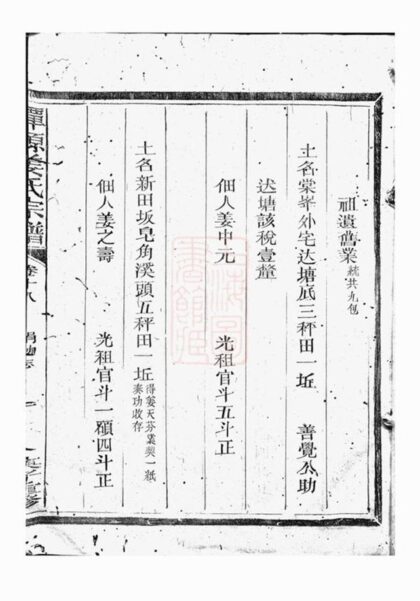 祖遺舊業統共九包
土名棠峯外宅达塘底三秤田一坵 善覺公助
达塘該稅壹釐
佃人姜中元 光租官斗五斗正
土名新田坂皂角溪頭五秤田一坵得姜天芬袭契一紙奏功收存
佃人姜之壽 光租官斗一碩四斗正
姜氏宗譜 卷十八 捐助志